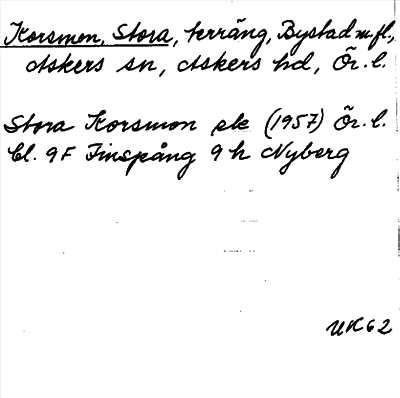 Korsmon, Stora, terräng, Bystad m.fl.,
Askers sn, Askers hd, Ör. l.
Stora Korsmon ek (1957) Ör. l.
bl. 9F Finspång 9 h Nyberg
UK62